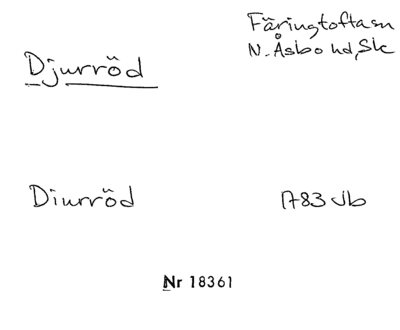 Djurröd
Färingtofta sn
N. Åsbo hd, Sk
Diurröd
1783 Jb
Nr 18361